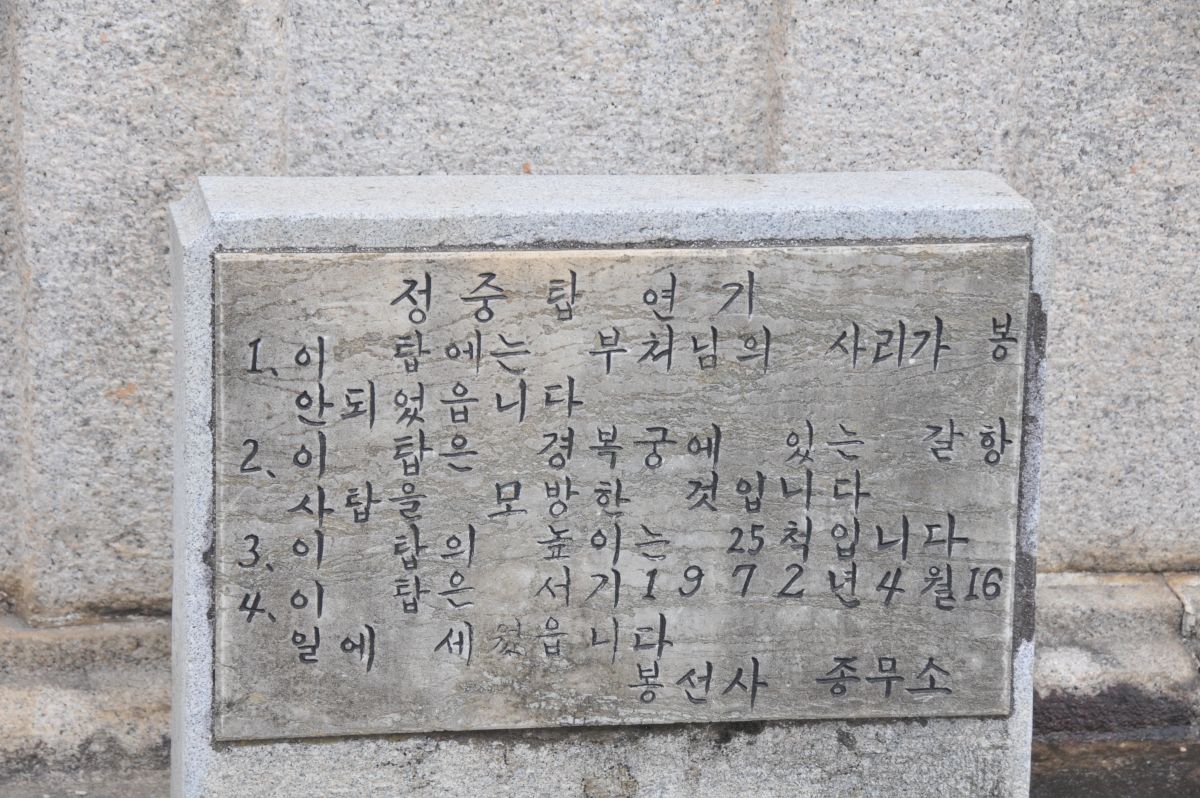 정중탑 연기
1. 이 탑에는 부쳐님의 사리가 봉
안되었읍니다
2. 이 탑은 경복궁에 있는 갈항
사탑을 모방한 것입니다
3. 이 탑의 높이는 25척입니다
4. 이 탑은 서기1972년4월16
일에 세웠읍니다
봉선사 종무소